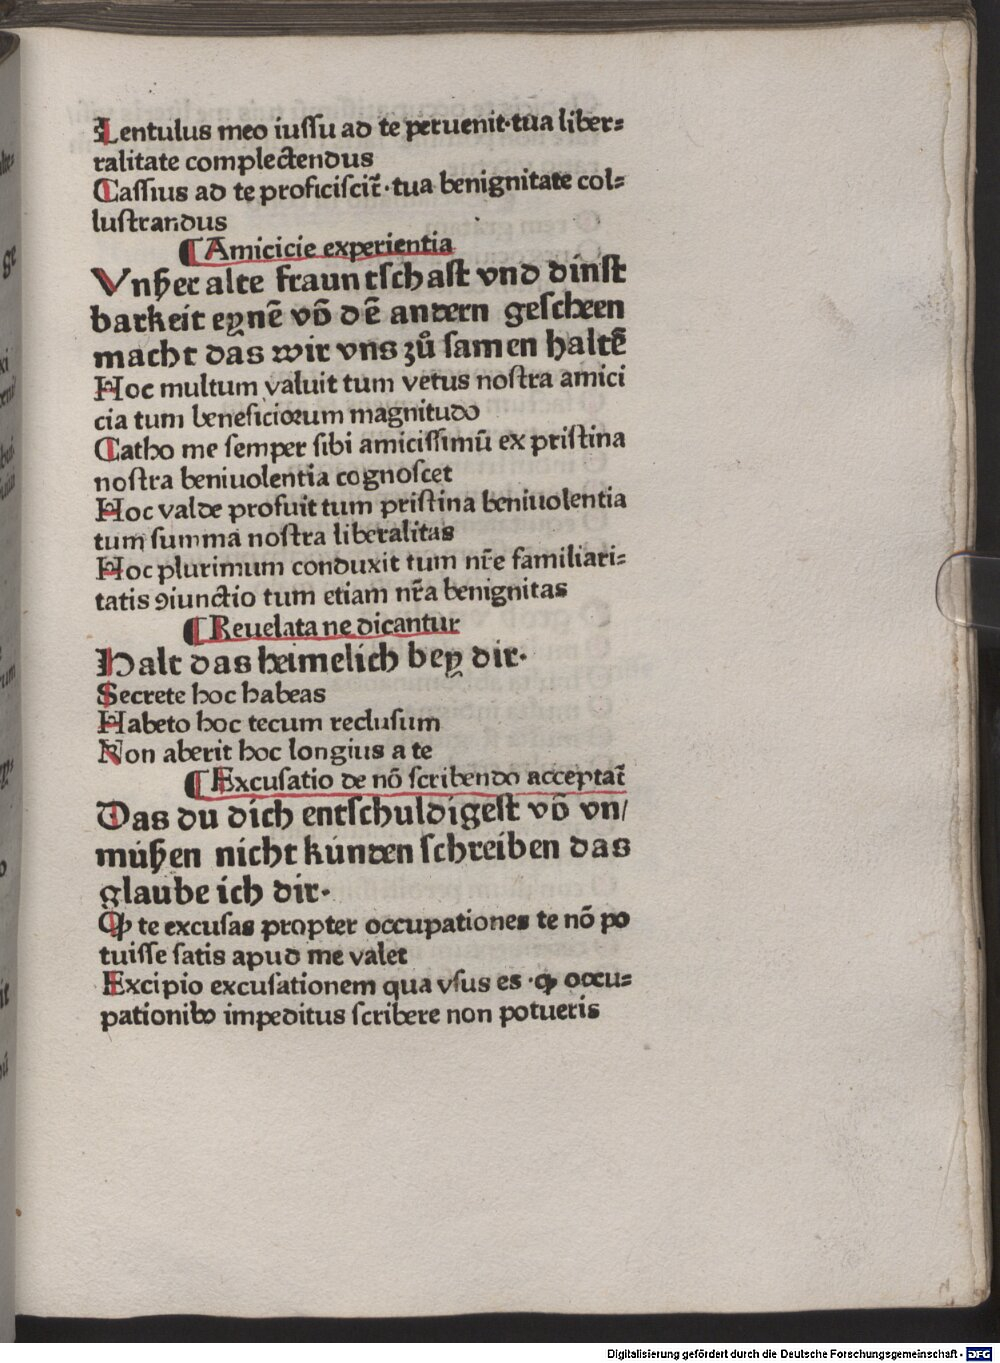 Lentulus meo iussu ad te peruenit·tua liber⸗
ralitate complectendus
Cassius ad te proficiscit᷑·tua benignitate col⸗
lustrandus
¶ Amicicie experientia
Vnßer alte fraun tschafft vnd dinst
barkeit eynē vō dē andern gescheen
macht das wir vns zů samen haltē
Hoc multum valuit tum vetus nostra amici
cia tum beneficiorum magnitudo
Catho me semper sibi amicissimū ex pristina
nostra beniuolentia cognoscet
Hoc valde profuit tum pristina beniuolentia
tum summa nostra liberalitas
Hoc plurimum conduxit tum nr̄e familiari⸗
tatis ꝯiunctio tum etiam nr̄a benignitas
¶ Reuelata ne dicantur
Halt das heimelich bey dir·
Secrete hoc habeas
Habeto hoc tecum reclusum
Non aberit hoc longius a te
¶ Excusatio de nō scribendo acceptat᷑
Das du dich entschuldigest vō vn/
müßen nicht künden schreiben das
glaube ich dir·
Ꝙ te excusas propter occupationes te nō po
tuisse satis apud me valet
Excipio excusationem qua vsus es ·ꝙ occu⸗
pationibꝰ impeditus scribere non potueris
Digitalisierung gefördert durch die Deutsche Forschungsgemeinschaft - DFG